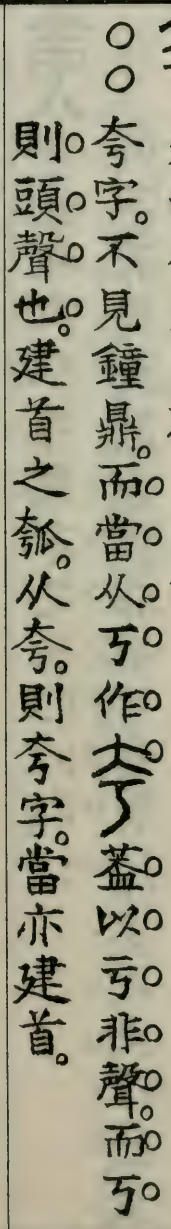 夸字。不見鐘鼎。而當从丂作夸蓋以亏非聲。而丂
則頭聲也。建首之瓠。从夸。則夸字。當亦建首。